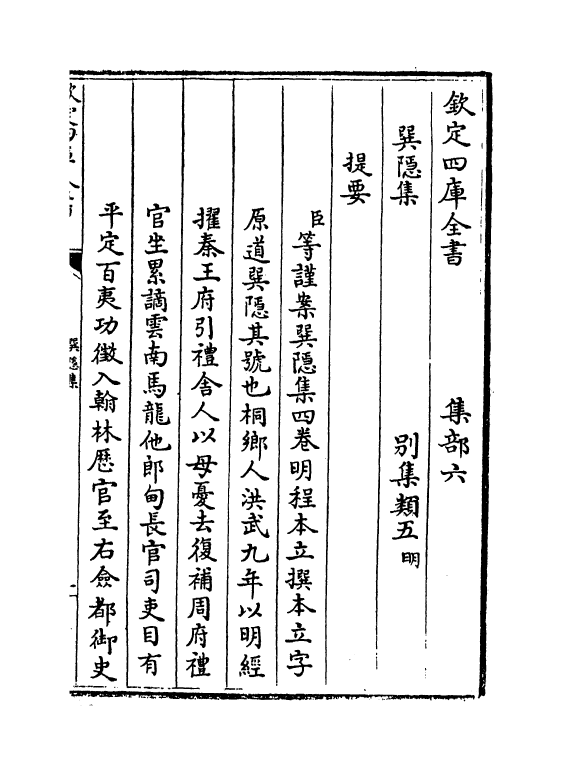 欽定四庫全書　集部六
巽隱集　別集類五　明
提要
臣等謹案巽隱集四卷明程本立撰本立字
原道巽隱其號也桐鄉人洪武九年以明經
擢秦王府引禮舍人以母憂去復補周府禮
官坐累謫雲南馬龍他郎甸長官司吏目有
平定百夷功徵入翰林歷官至右僉都御史
巽隱集